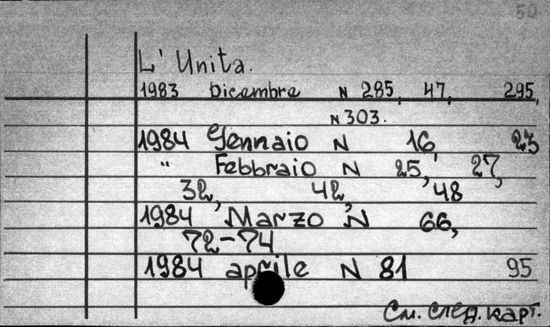 50
L' Unita.
1983 Dicembre N 285, 47, 295,
N 303.
1984 Gennaio N 16, 23
" Febbraio N 25, 27,
32, 42, 48
1984 Marzo N 66,
72-74
1984 aprile N 81 95
См. след. карт.